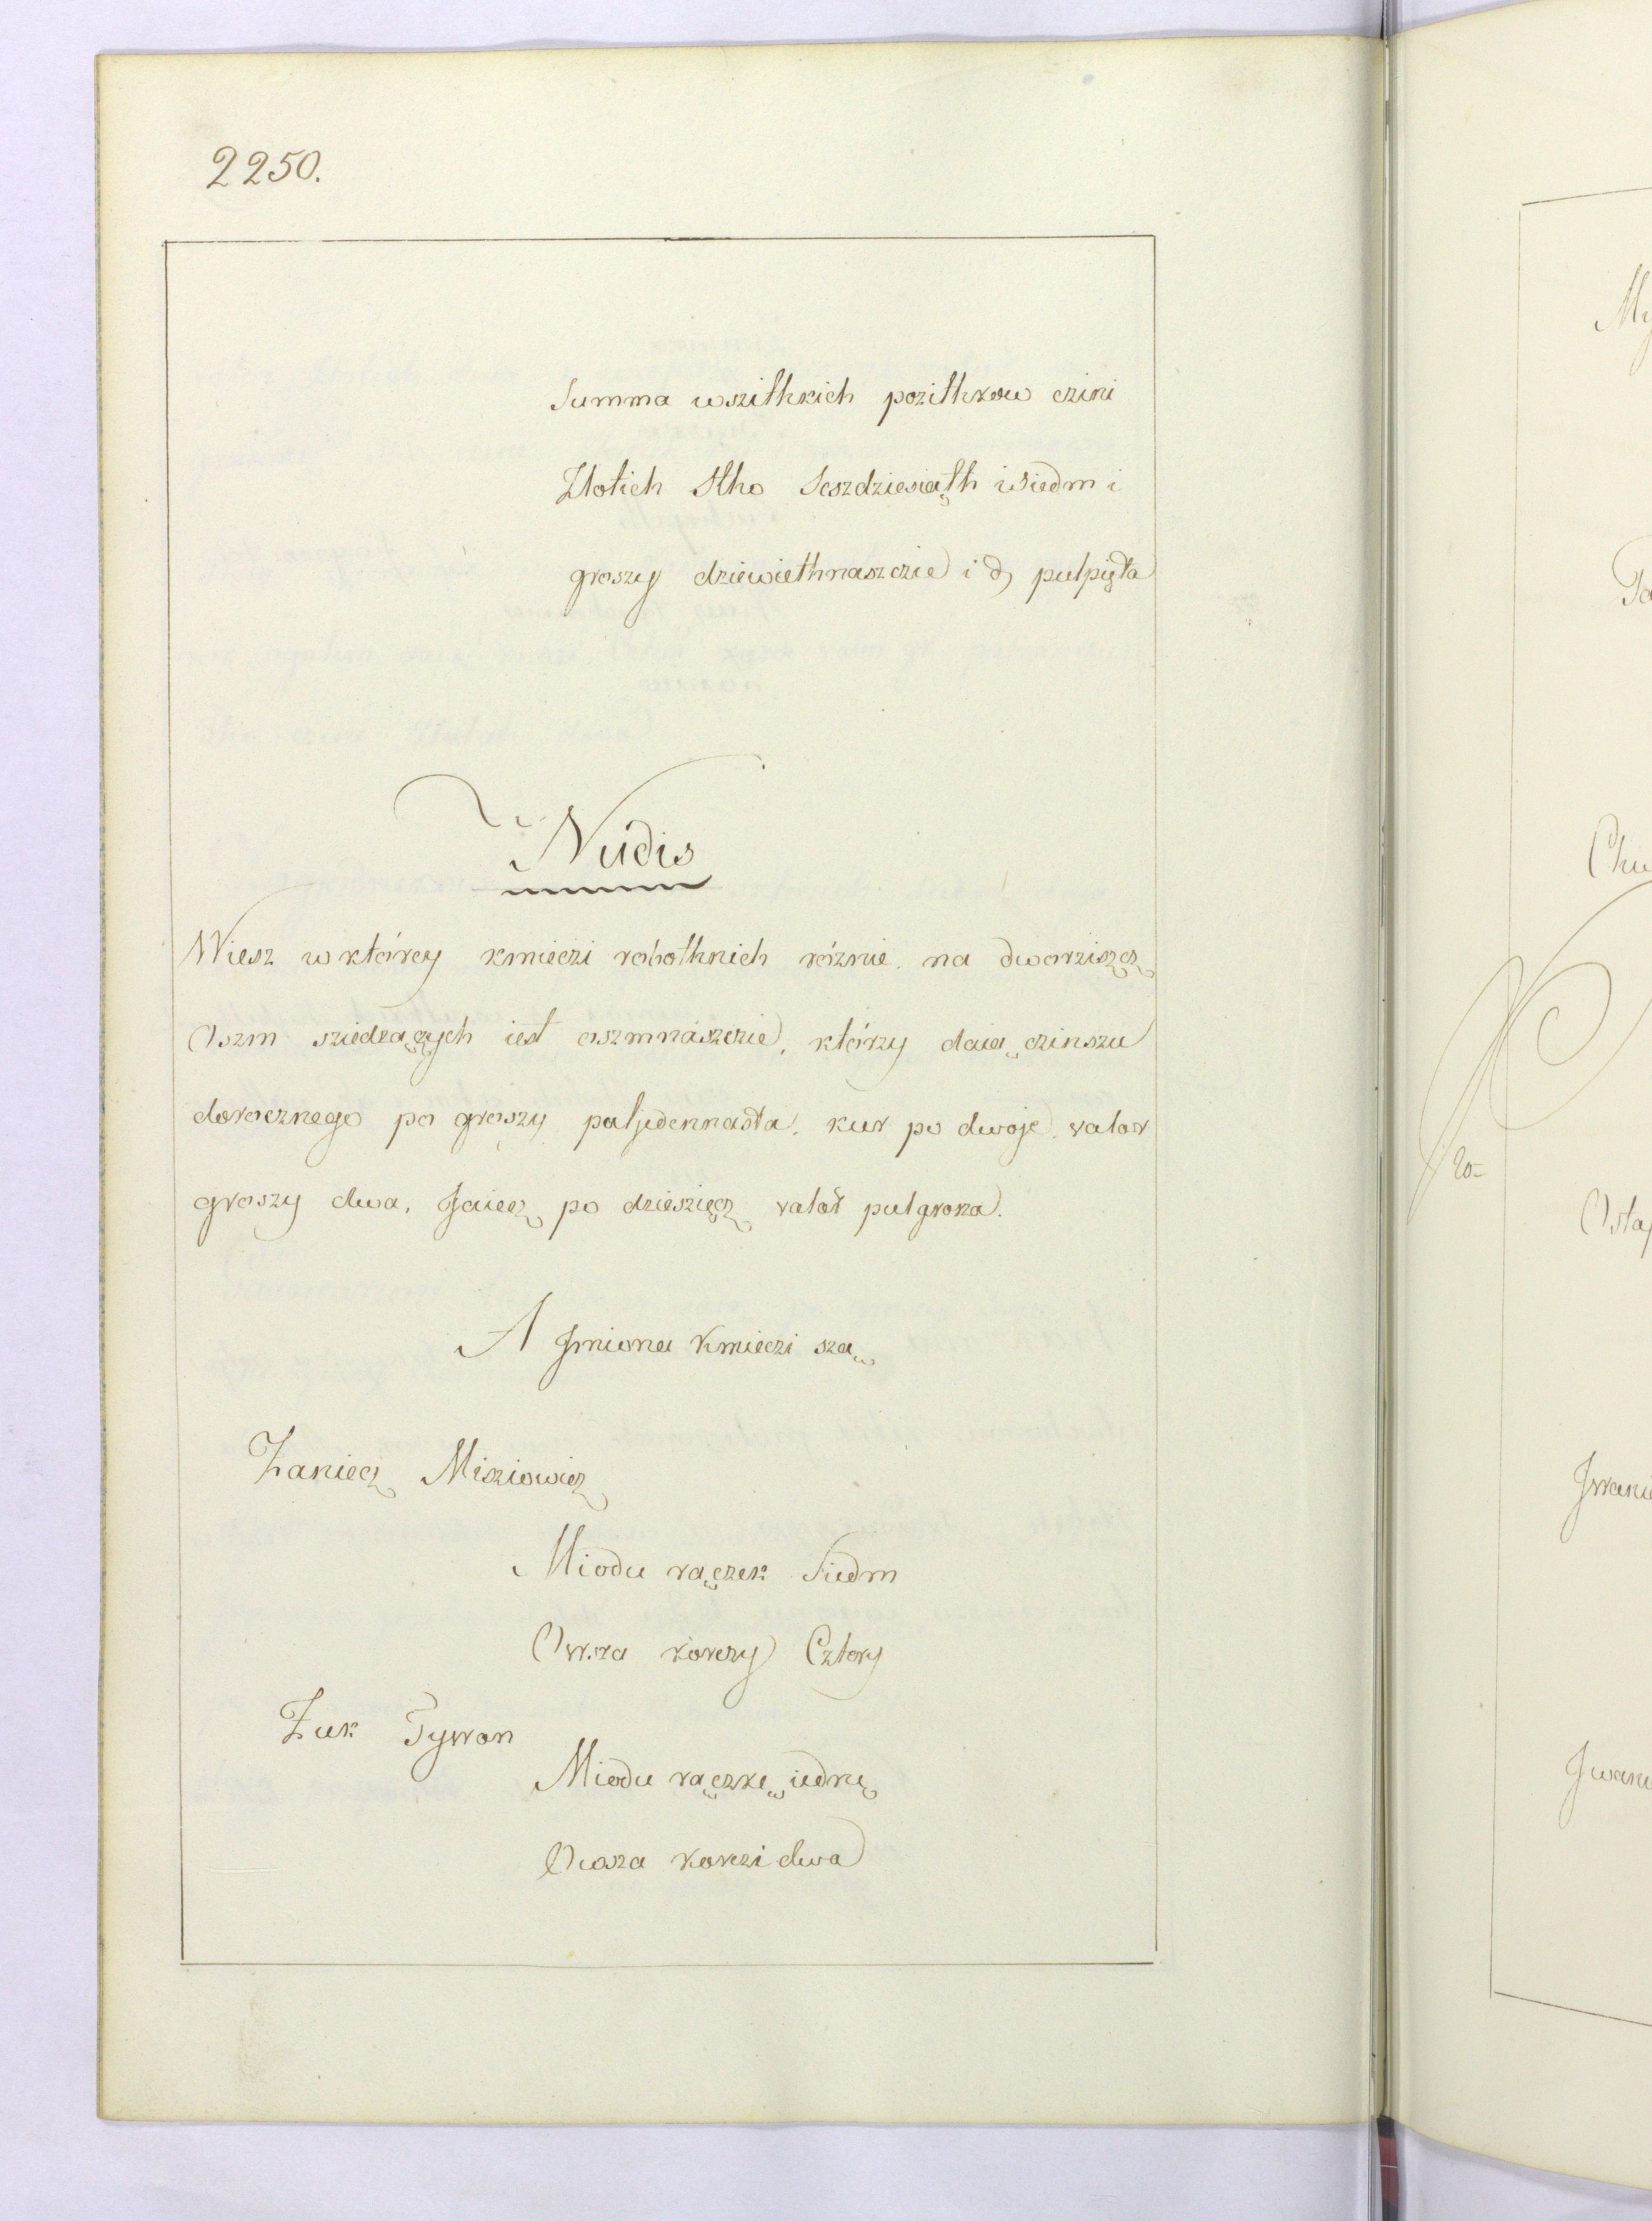 2250.
Summa wszithkich pozithkow czini
Złotich Stho Seszdziesiąth i Siedm i
groszy dziewiethnaszczie i ∂ pulpięta
Nudis
Wiesz w którey kmieczi robothnich róznie na dworziszcz
Oszm sziedzączych iest oszmnaszczie, którzy daią czinszu
dorocznego po groszy puljedennasta, kur po dwoje valor
groszy dwa, Jaiecz po dzieszięcz valor pulgrosza.
A Jmiona Kmieczi szą
Zaniecz Misziowicz
Miodu rączek Siedm
Owsza korczy Cztery
Zuk Tywon
Miodu rączkę iednę
Owsza korczi dwa